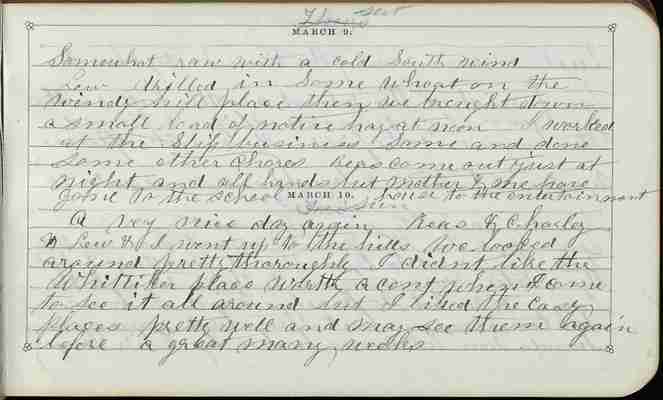 MARCH 9.
Somewhat raw with a cold South wind
Lew drilled in some wheat on the
windy hill place then we brought down
a small load of native hay at noon I worked
at the Slip business some and done
some other chores Reas come out just at
night and all hands but mother & me have
gone to the school house to the entertainment
MARCH 10.
A very nice day again Reas & Charley
& Lew & I went up to the hills we looked
around pretty thoroughly I didnt like the
Whittiker place worth a cent when I come
to see it all around but I liked the Casey
places pretty well and may see them again
before a great many weeks